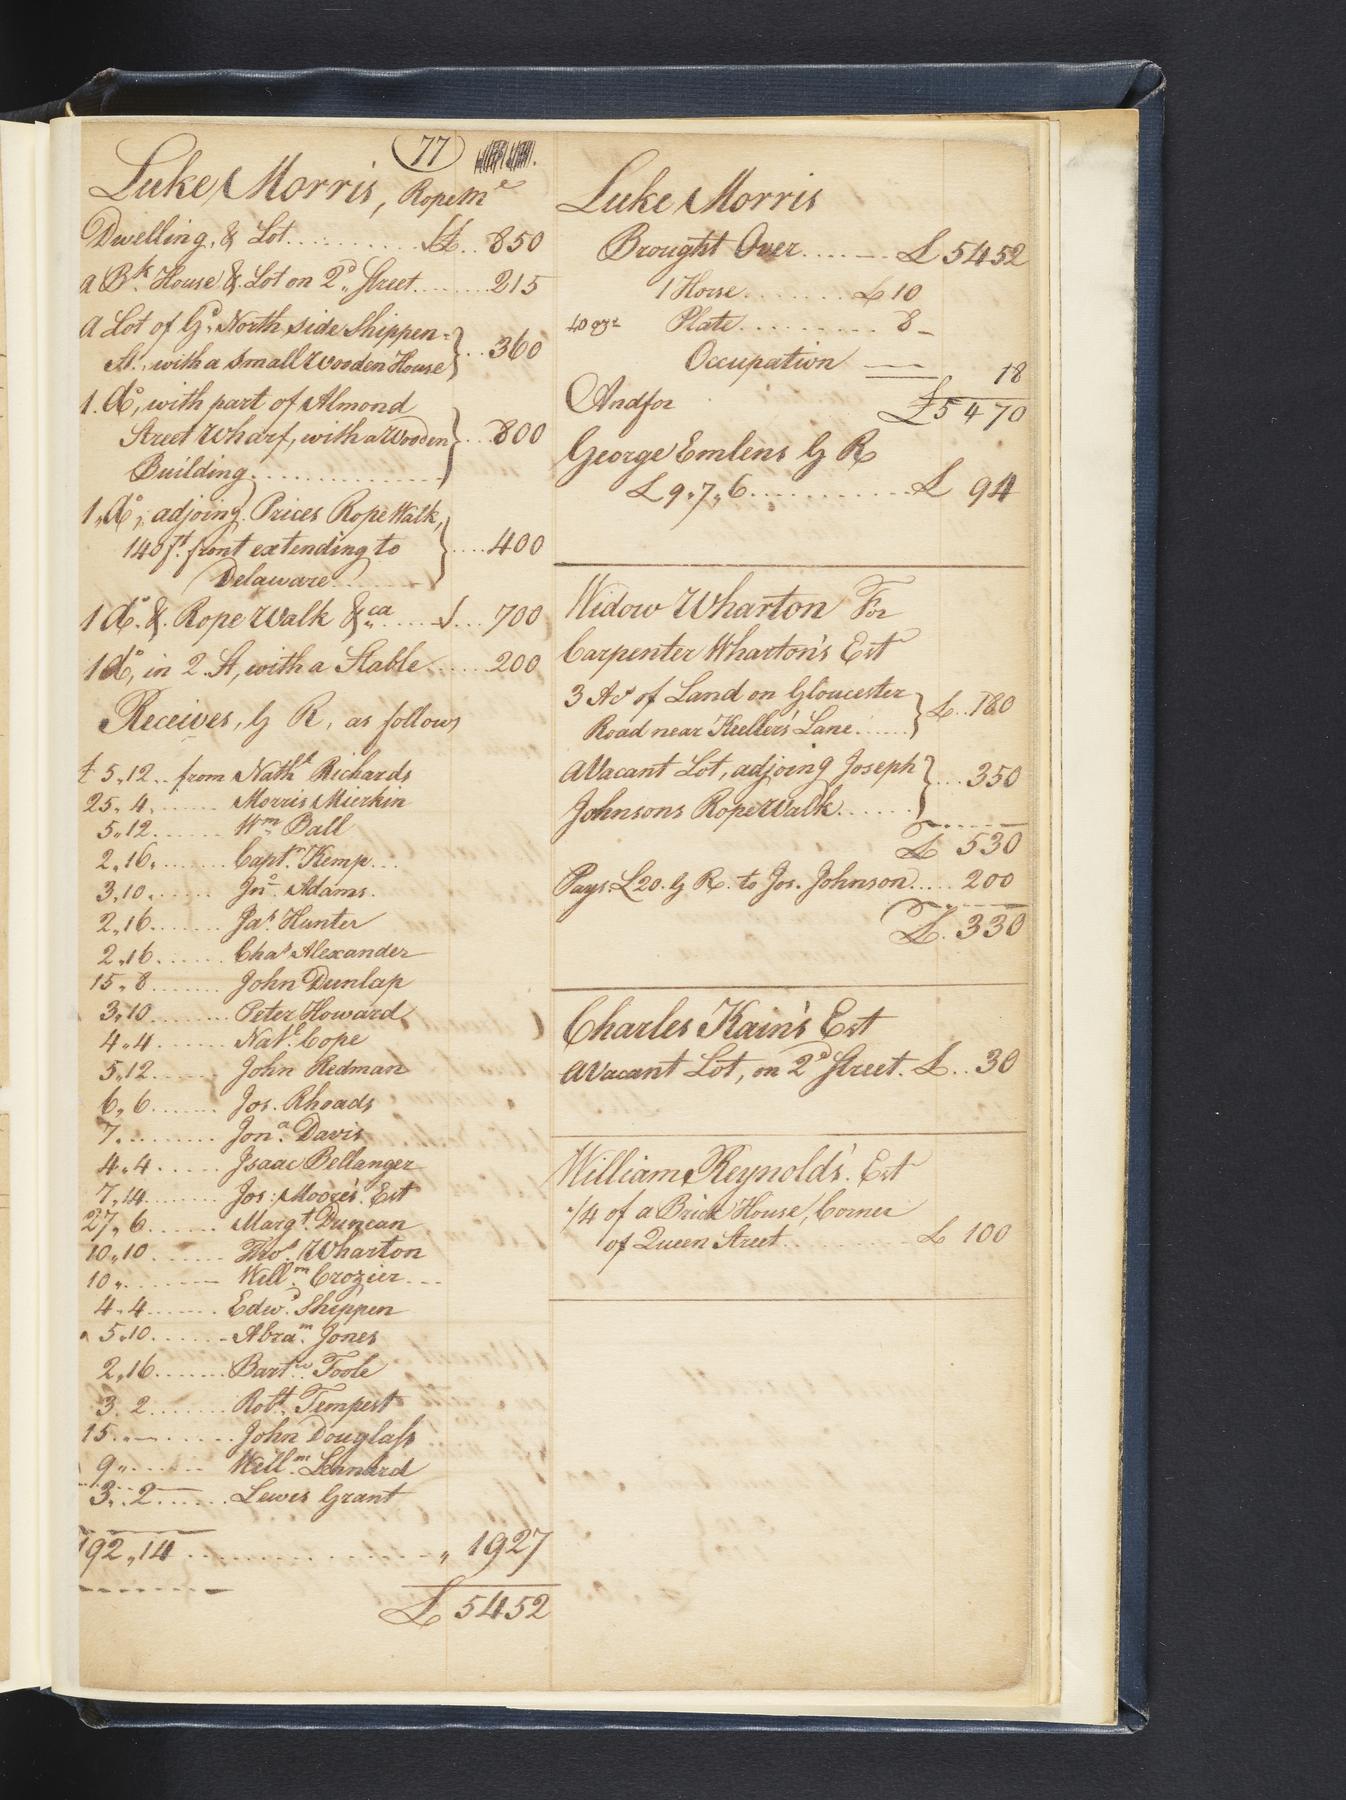 77
Luke Morris, Rope Mr
Dwelling, & Lot ........... £ .. 850
a Bk. House & Lot on 2d. Street ....... 215
a Lot of Gd. North side Shippen-
St. with a small Wooden House } .. 360
1. do, with part of Almond
Street Wharf, with a Wooden } .. 800
Building ..............
1. do, adjoing. Prices Rope Walk,
140 ft. front extending to } .... 400
Delaware ........
1 do. & Rope Walk &ca ...... 700
1 do, in 2. St, with a Stable ..... 200
Receives, G R, as follows
£ 5,,12 .. from Nathl Richards
25,,4 ....... Morris Mierkin
5,,12 ....... Wm Ball
2,,16 ....... Captn. Kemp ...
3,,10 ....... Jno. Adams.
2,,16 ....... Jas. Hunter
2,,16 ....... Chas Alexander
15,,8 ....... John Dunlap
3,,10 ....... Peter Howard
4,,4 ....... Natl. Cope
5,,12 ....... John Redman
6,,6 ....... Jos. Rhoads
7,, ......... Jona. Davis
4,,4 ...... Isaac Bellanger
7,,14 ....... Jos: Moore's Est
27,,6 ....... Margt. Duncan
10,,10 ....... Thos. Wharton
10,, ......... Willm. Crozier ...
4,,4 ....... Edwd. Shippen
5,,10 ....... Abram. Jones
2,,16 ....... Bartw. Toole
3,,2 ....... Robt. Tempest
15,,— ....... John Douglass
9,, ....... Willm. Lennard
3,,2 ...... Lewis Grant
192,,14 ................ ,, 1927
£ 5452
Luke Morris
Brought Over ....... £ 5452
1 Horse ........ £ 10
40 ozs Plate ......... 8 –
Occupation —— 18
And for £ 5470
George Emlens G R
£ 9,,7,,6 ............ £ 94
Widow Wharton For
Carpenter Wharton's Est
3 As of Land on Gloucester
Road near Keeller's Lane ...... } £ .. 180
a Vacant Lot, adjoing Joseph
Johnsons Rope Walk ....... } ... 350
£ 530
Pays £20. G R. to Jos. Johnson ..... 200
£ 330
Charles Kain's Est
a Vacant Lot, on 2d Street. £ .. 30
William Reynolds'. Est
1/4 of a Brick House, Corner
of Queen Street ........... £ 100